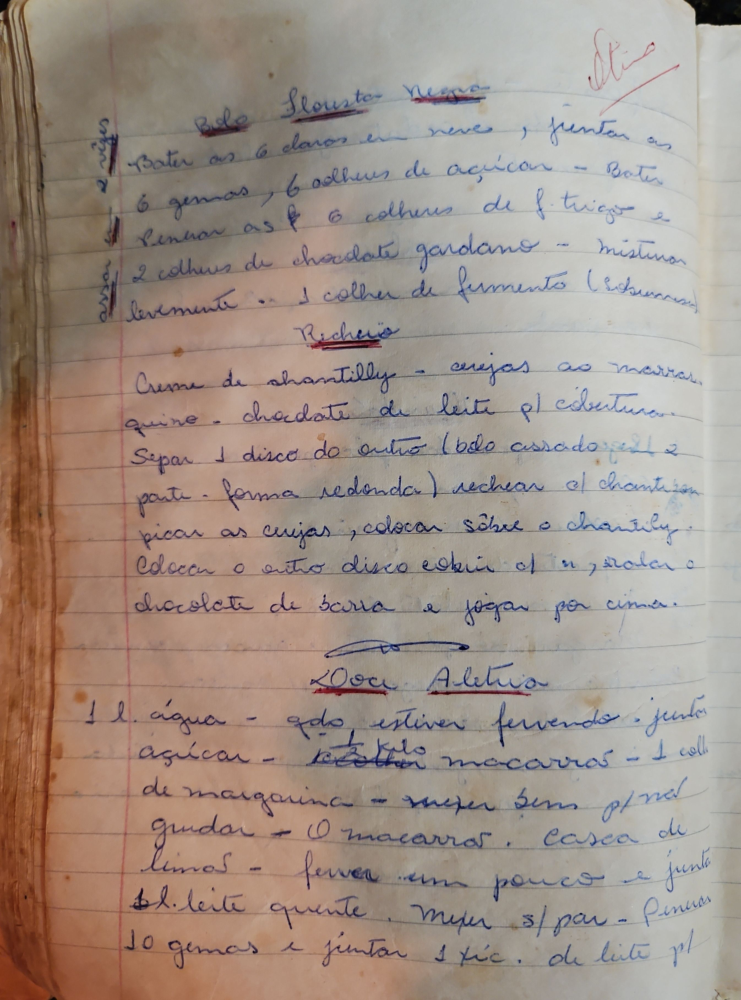 Ótimo
Bolo Floresta Negra
Bater as 6 claras em neve, juntar as
6 gemas, 6 colheres de açúcar - Bater
Penerar as 6 colheres de f. trigo e
2 colheres de chocolate gardano - misturar
levemente .. 1 colher de fermento (sobremesa)
assar 2 vezes
Recheio
Creme de chantilly - cerejas ao marras.
quino - chocolate de leite p/ cobertura.
Separ 1 disco do outro (bolo assado 2
parte - forma redonda) rechear c/ chanti
picar as cerejas, colocar sôbre o chantily.
Colocar o outro disco cobrir c/ ", ralar o
chocolate de barra e jogar por cima.
Doce Aletria
1 l. água - qdo estiver fervendo - juntar
açúcar - 1/2 kilo macarrão - 1 colh
de margarina - mexer bem p/ não
grudar - O macarrão. Casca de
limão - ferver um pouco e juntar
1 l. leite quente. Mexer s/ par - Penerar
10 gemas e juntar 1 xíc. de leite p/